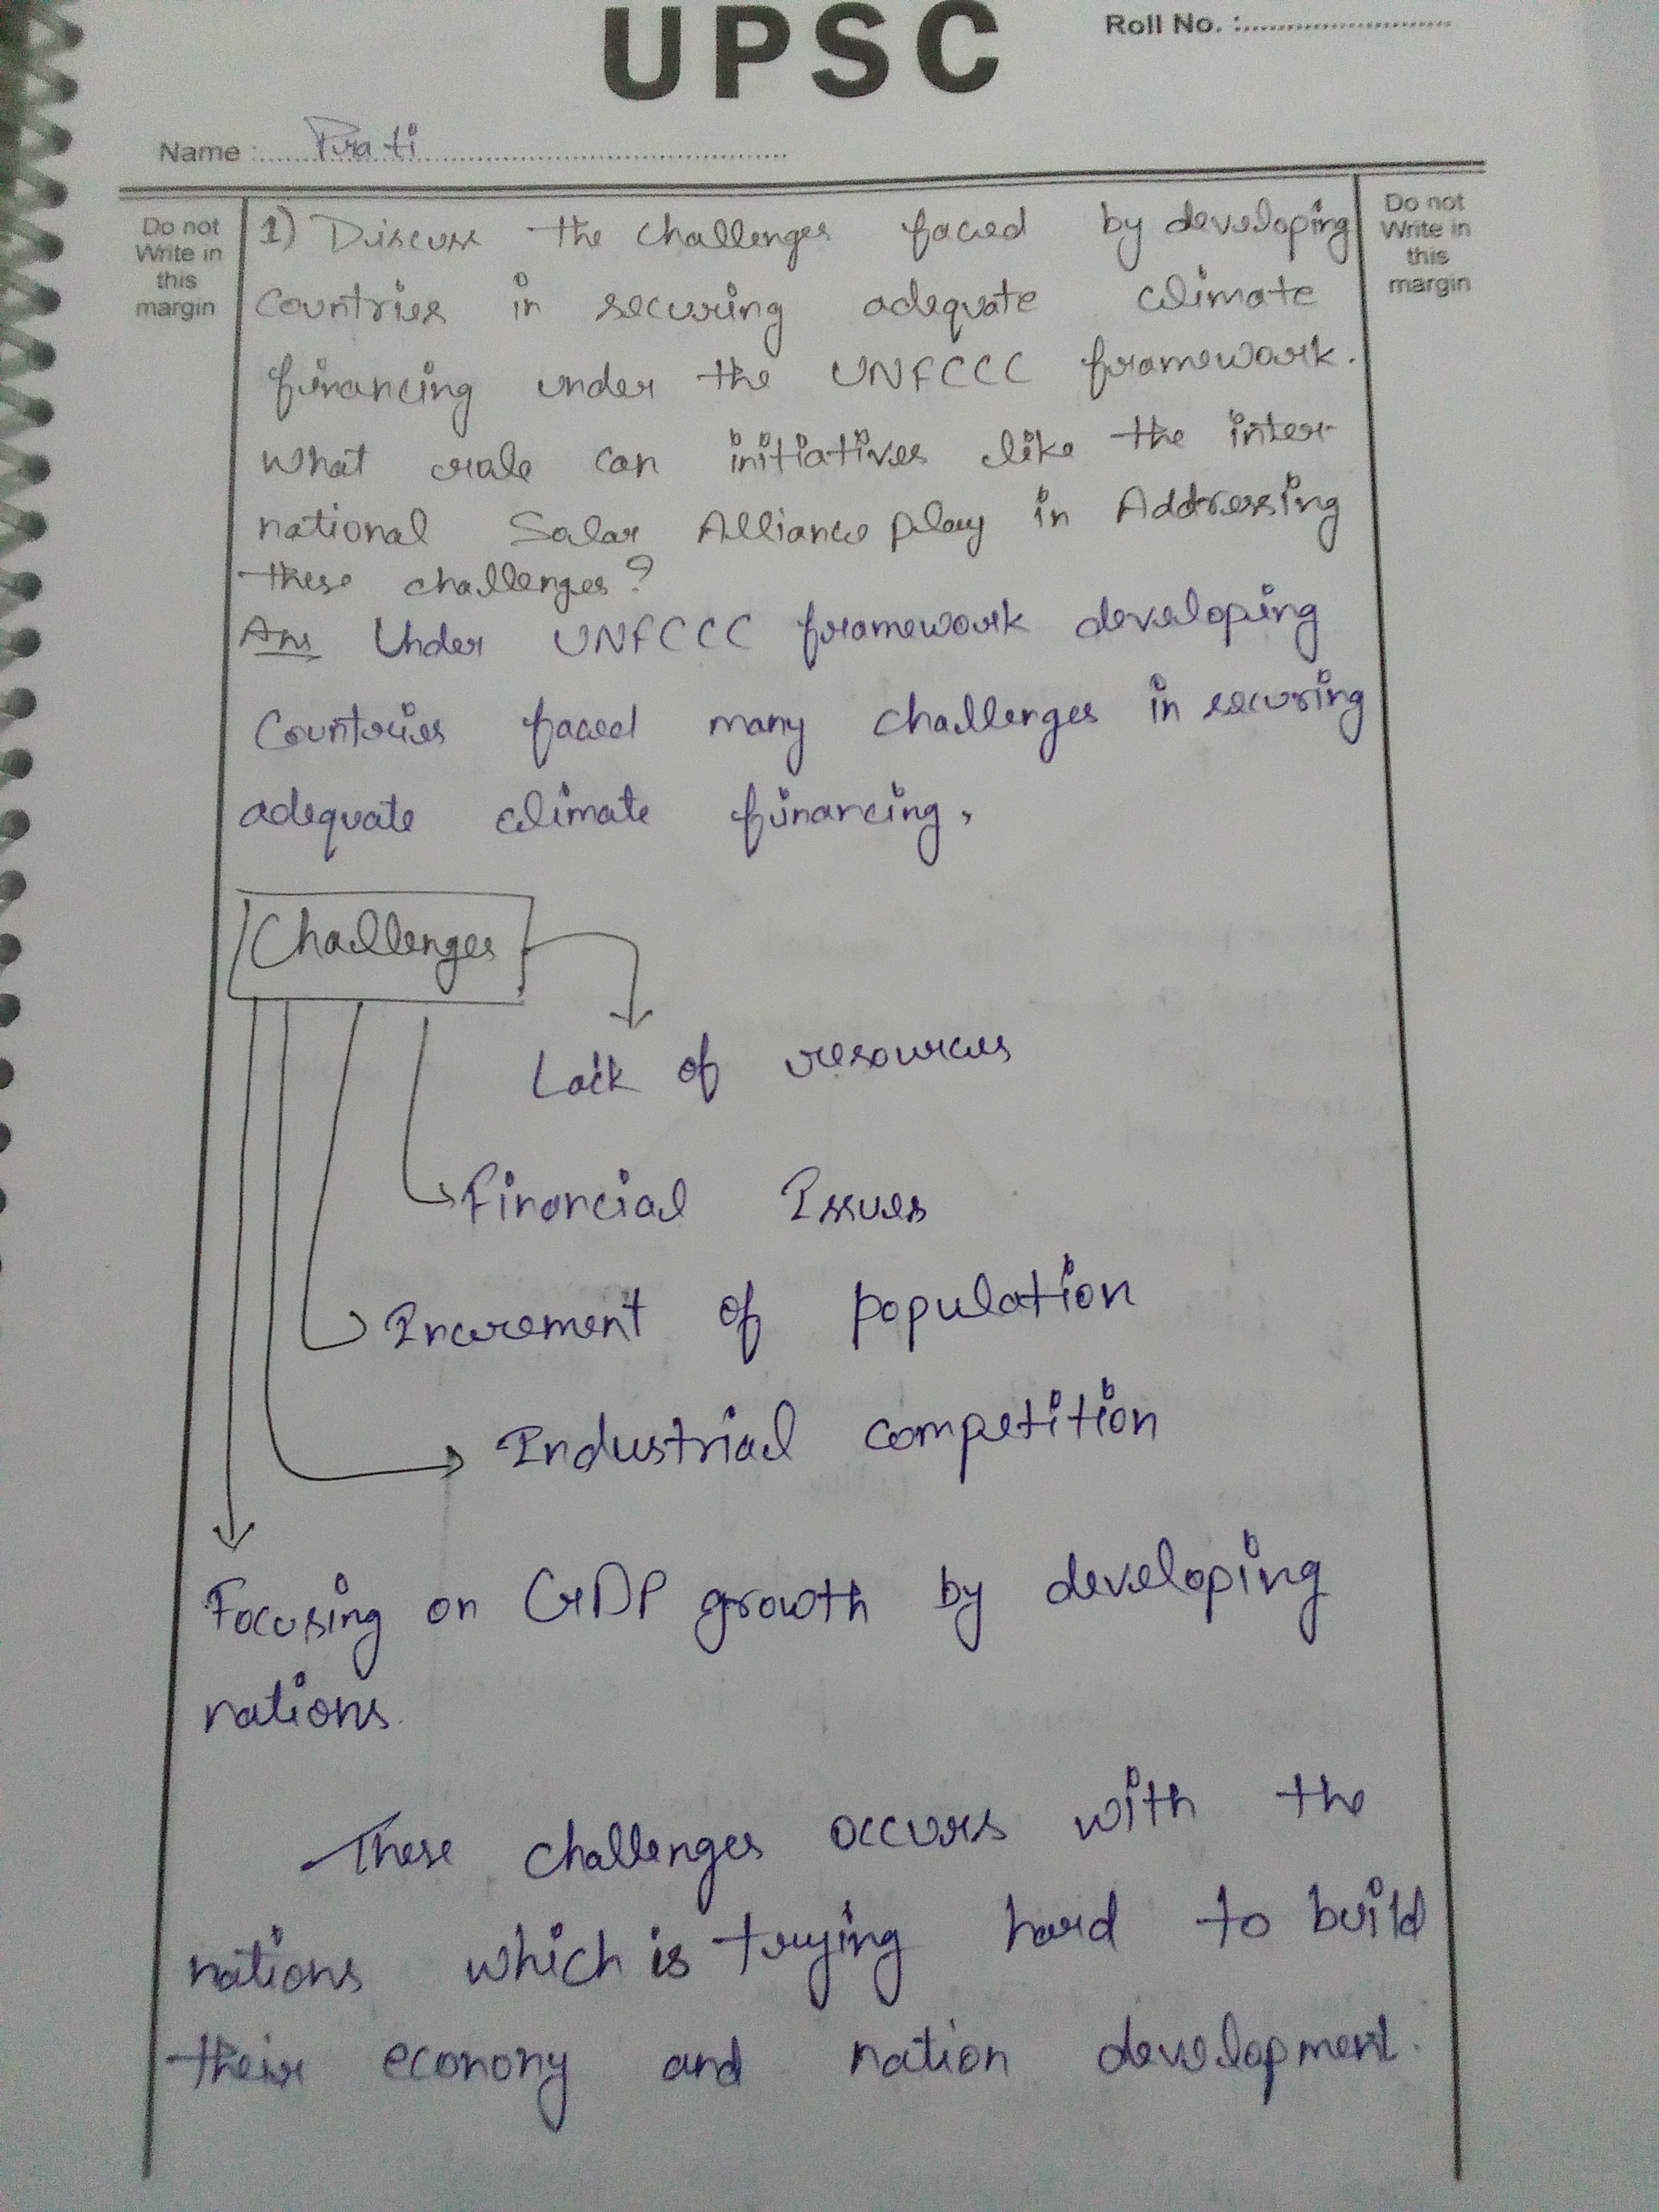 UPSC
Roll No. :
Name : Prati
Do not
Write in
this
margin
Do not
Write in
this
margin
1) Discuss the challenges faced by developing
countries in securing adequate climate
financing under the UNFCCC framework.
What role can initiatives like the inter-
national Solar Alliance play in Addressing
these challenges?
Ans Under UNFCCC framework developing
Countries faced many challenges in securing
adequate climate financing.
Challenges
Lack of resources
Financial Issues
Increment of population
Industrial competition
Focusing on GDP growth by developing
nations.
These challenges occurs with the
nations which is trying hard to build
their economy and nation development.